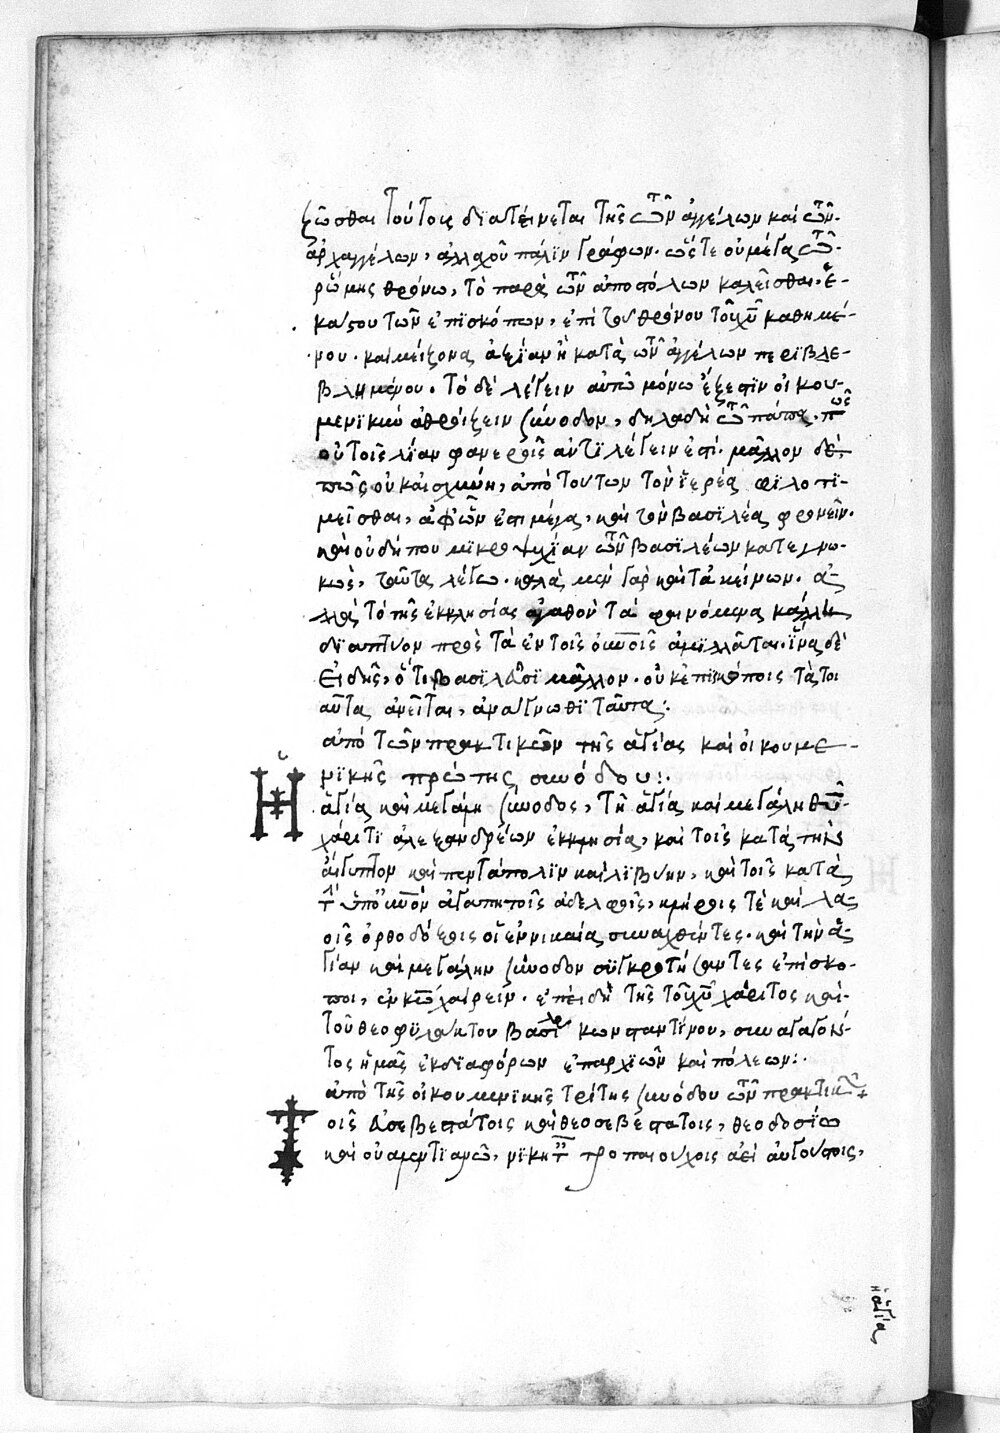 ζῶσθαι τούτοις διατείνεται τῆς τῶν ἀγγέλων καὶ τῶν
ἀρχαγγέλων, ἀλλαχοῦ πάλιν γράφων. ὥστε οὐ μέγα τῶ
ῥώμης θρόνω, τὸ παρὰ τῶν ἀποστόλων καλεῖσθαι. ἑ-
κάστου τῶν ἐπισκόπων, ἐπὶ τοῦ θρόνου τοῦ χυ καθημέ-
νου. καὶ μείζονα ἀξίαν ἢ κατὰ τῶν ἀγγέλων περιβλε-
βλημένου. τὸ δὲ λέγειν αὐτῶ μόνω ἔξεστιν οἰκου-
μενικὴν ἀθροίζειν σύνοδον, δηλαδὴ τῶ πάπα. πῶς
οὐ τοῖς λίαν φανεροῖς ἀντιλέγειν ἐστί. μᾶλλον δὲ
πῶς οὐκ αἰσχύνη, ἀπὸ τούτων τὸν ἱερέα φιλοτι-
μεῖσθαι, ἀφ' ὧν ἐστι μέγα, καὶ τὸν βασιλέα φρονεῖν.
καὶ οὐ δήπου μικροψυχίαν τῶν βασιλέων κατεγνω-
κὼς, ταῦτα λέγω. καλὰ μὲν γὰρ καὶ τὰ κείνων. ἀ-
λλὰ τὸ τῆς ἐκκλησίας ἀγαθὸν τὰ φαινόμενα κάλλη
διαπτύον πρὸς τὰ ἐν τοῖς οὐνοῖς ἁμιλλᾶται. ἵνα δὲ
εἰδῆς, ὅτι βασιλεῦσι μᾶλλον. οὐκ ἐπισκόποις τὰ τοι
αῦτα ἀνεῖται, ἀνάγνωθι ταῦτα:
ἀπὸ τῶν πρακτικῶν τῆς ἁγίας καὶ οἰκουμε-
νικῆς πρώτης συνόδου:
Ἡ ἁγία καὶ μεγάλη σύνοδος, τῆ ἁγία καὶ μεγάλη θυ
χάριτι ἀλεξανδρέων ἐκκλησία, καὶ τοῖς κατὰ τὴν
αἴγυπτον καὶ πεντάπολιν καὶ λιβύην, καὶ τοῖς κατὰ
τὴν ὑπ' οὐνὸν ἀγαπητοῖς ἀδελφοῖς, κλήροις τὲ καὶ λα-
οῖς ὀρθοδόξοις οἱ ἐν νικαία συναχθέντες. καὶ τὴν ἁ-
γίαν καὶ μεγάλην σύνοδον συγκροτήσαντες ἐπίσκο-
ποι, ἐν κω χαίρειν. ἐπειδὴ τῆς τοῦ χυ χάριτος καὶ
τοῦ θεοφυλάκτου βασιλέως κωνσταντίνου, συναγαγόν-
τος ἡμᾶς ἐκ διαφόρων ἐπαρχιῶν καὶ πόλεων:
ἀπὸ τῆς οἰκουμενικῆς τρίτης συνόδου τῶν πρακτικῶν
Τοῖς εὐσεβεστάτοις καὶ θεοσεβεστάτοις, θεοδοσίω
καὶ οὐαλεντιανῶ, νικηταῖς τροπαιούχοις ἀεὶ αὐγούστοις,
ἡ ἁγία